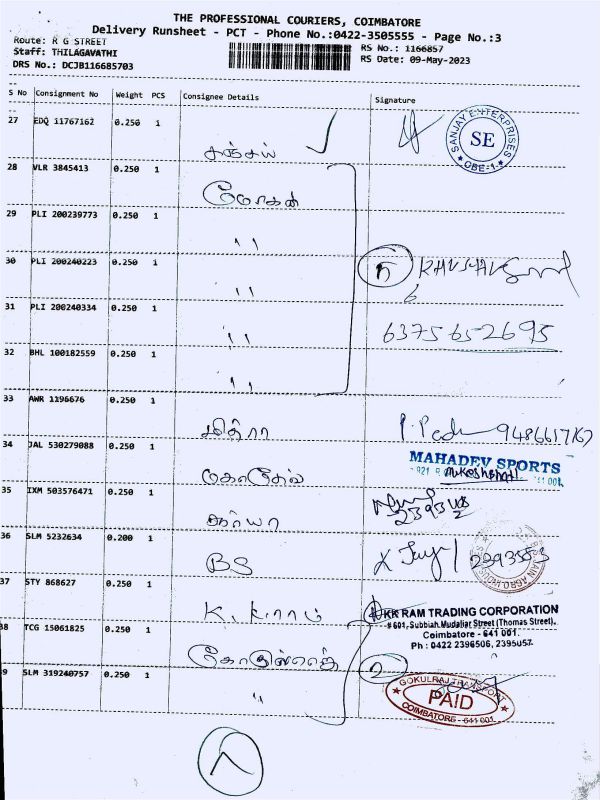 THE PROFESSIONAL COURIERS, COIMBATORE
Delivery Runsheet - PCT - Phone No.:0422-3505555 - Page No.:3
Route: R G STREET
RS No.: 1166857
Staff: THILAGAVATHI
RS Date: 09-May-2023
DRS No.: DCJB116685703
S No Consignment No Weight PCS Consignee Details Signature
27 EDQ 11767162 0.250 1
SANJAY ENTERPRISES
SE
CBE-1
28 VLR 3845413 0.250 1
மோகன்
29 PLI 200239773 0.250 1
"
30 PLI 200240223 0.250 1
"
31 PLI 200240334 0.250 1
6375652695
"
32 BHL 100182559 0.250 1
"
33 AWR 1196676 0.250 1
மித்ரா
34 JAL 530279088 0.250 1
MAHADEV SPORTS
641 001.
35 IXM 503576471 0.250 1
சூர்யா
36 SLM 5232634 0.200 1
BS
37 STY 868627 0.250 1
K. K.ராம்
KK RAM TRADING CORPORATION
# 601, Subbiah Mudaliar Street (Thomas Street),
Coimbatore - 641 001.
Ph : 0422 2396506, 2395057.
38 TCG 15061825 0.250 1
2
39 SLM 319240757 0.250 1
"
GOKULRAJ TRANSPORT
PAID
COIMBATORE - 641 001